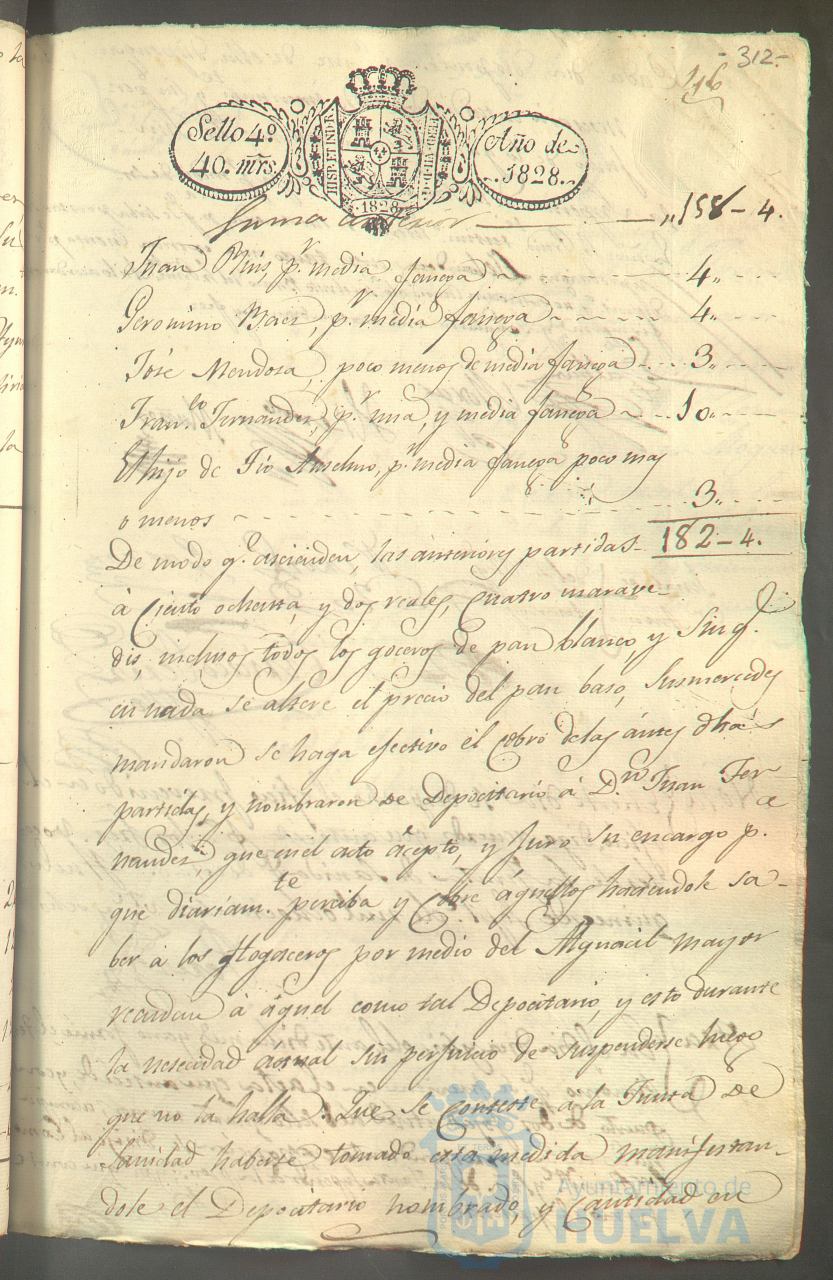 - 312 -
Sello 4º
40. mrs.
HISP. ET IND. R.
1828
Año de
1828.
Suma anterior „158 - 4.
Juan Ruis, pr. media fanega 4„
Geronimo Baez, pr. media fanega 4„
José Mendoza, poco menos de media fanega 3„
Franco. Fernandez, pr. una, y media fanega 10„
El hijo de Tio Anselmo, pr. media fanega poco mas
o menos 3„
De modo qe. ascienden, las anteriores partidas 182 - 4.
à Ciento ochenta, y dos reales, cuatro marave-
dis, inclusos todos los goceros de pan blanco, y sin qe.
en nada se altere el precio del pan bazo, sus mercedes
mandaron se haga efectivo el cobro de las ántes dhas
partidas, y nombraron de Depocitario à Dn. Juan Fer-
nandez, que en el acto aceptó, y juró su encargo pa.
que diariamte. perciba y cobre aquellos haciendole sa-
ber à los por medio del Alguacil mayor
à aquel como tal Depocitario, y esto durante
la nesecidad actual sin perjuicio de suspenderse luego
que no la halla. Que se conteste à la Junta de
Sanidad haberse tomado esta medida manifestan-
dole el Depocitario nombrado, y cantidad en
Ayuntamiento de
HUELVA